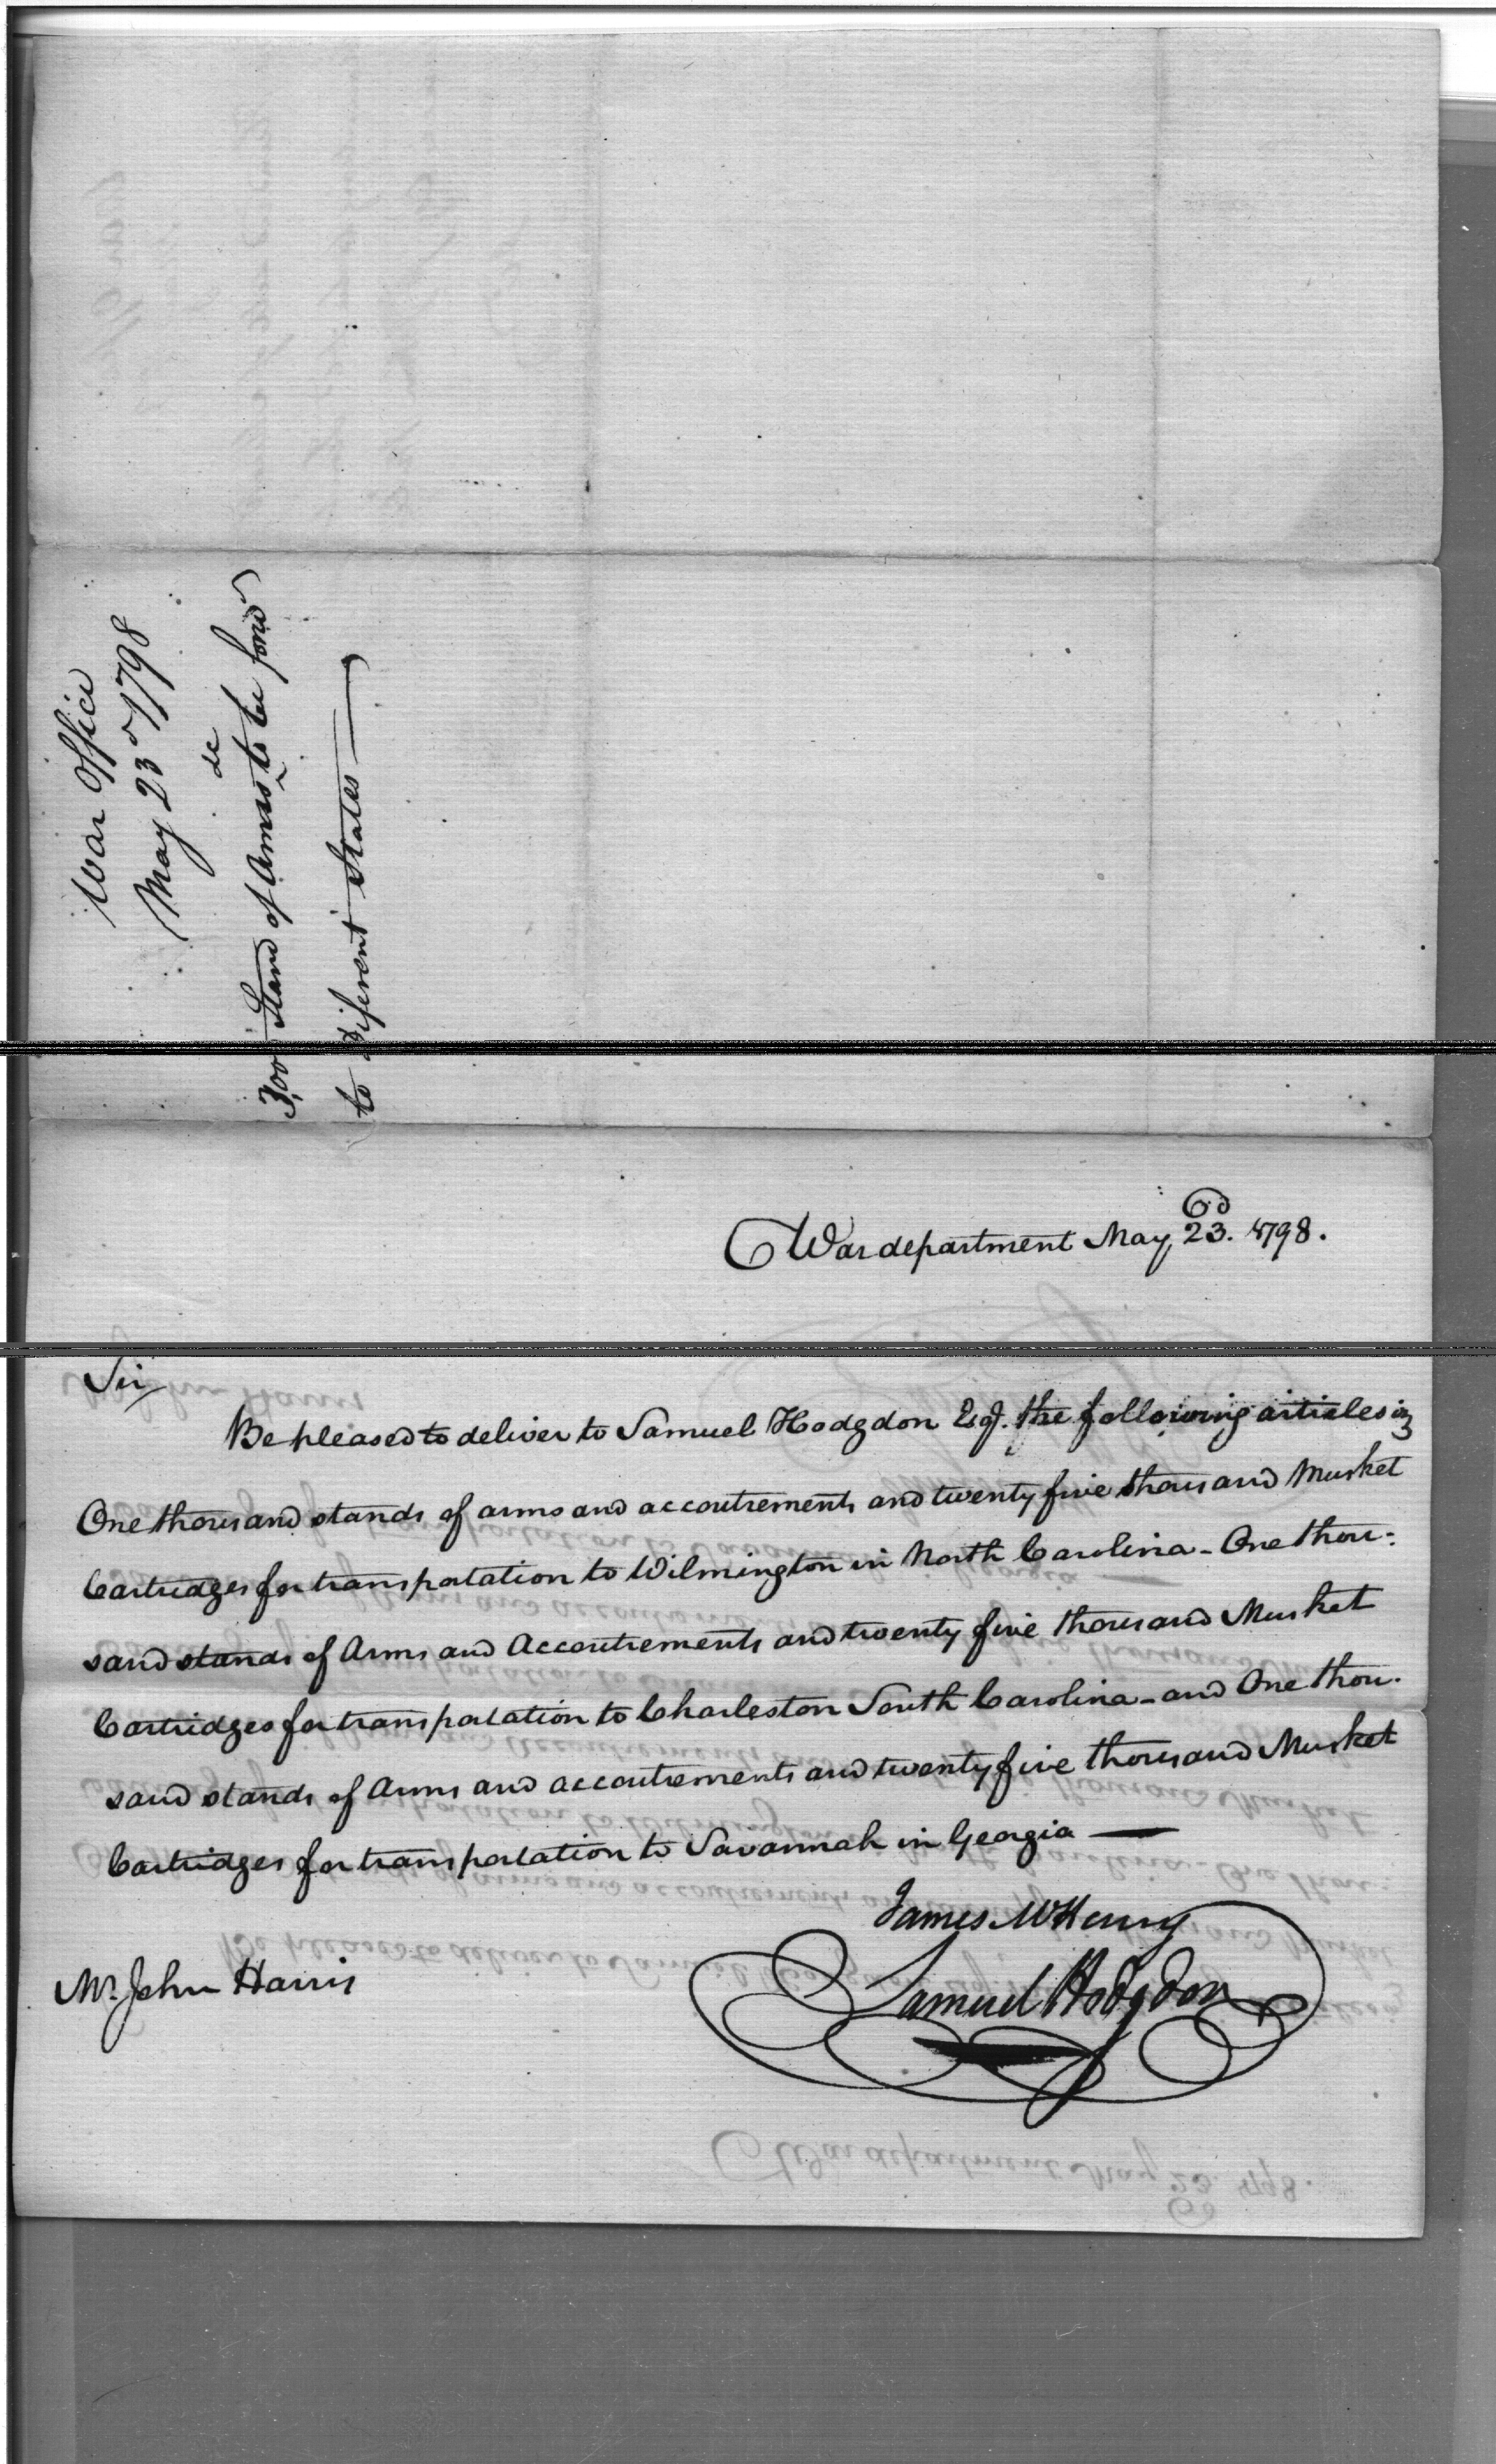 War Office
May 23d 1798
&c
3,000 Stand of Arms ^ to be forwd
to different States
War department May, 23d. 1798.
Sir
Be pleased to deliver to Samuel Hodgdon Esq. the following articles viz
One thousand stands of arms and accoutrements and twenty five thousand Musket
Cartridges for transportation to Wilmington in North Carolina - One thou-
sand stands of Arms and Accoutrements and twenty five thousand Musket
Cartridges for transportation to Charleston South Carolina - and One thou-
sand stands of Arms and accoutrements and twenty five thousand Musket
Cartridges for transportation to Savannah in Georgia —
James McHenry
Samuel Hodgdon
Mr. John Harris